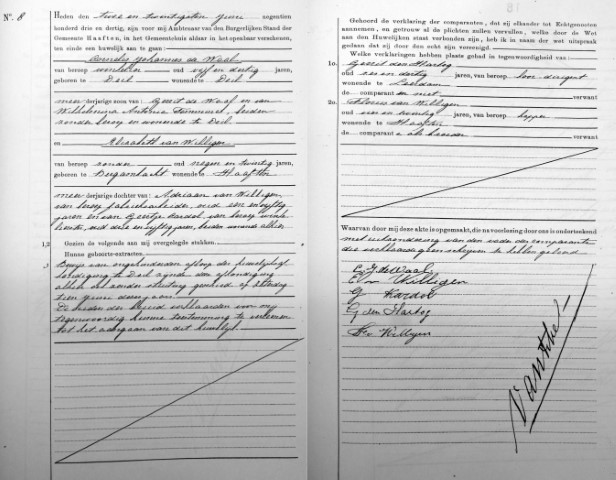 No. 8
Heden den twee en twintigsten Juni negentien
honderd drie en dertig, zijn voor mij Ambtenaar van den Burgerlijken Stand der
Gemeente Haaften, in het Gemeentehuis aldaar in het openbaar verschenen,
ten einde een huwelijk aan te gaan:
Cornelis Johannes de Waal
van beroep oud vijf en dertig jaren,
geboren te Deil wonende te Deil
meerderjarige zoon van Gerrit de Waal en van
Wilhelmina Antonia beiden
zonder beroep en wonende te Deil
en Elizabeth van Willigen
van beroep zonder oud negen en twintig jaren,
geboren te Bergambacht wonende te Haaften
meerderjarige dochter van Adriaan van Willigen
van beroep fabrieksarbeider, oud een en vijftig
jaren en van Kardol, van beroep
oud drie en vijftig jaren, beiden wonende alhier
1,2 Gezien de volgende aan mij overgelegde stukken.
Hunne geboorte-extracten.
3 Bewijs van onverhinderden afloop der huwelijksaf-
kondiging te Deil zijnde den afkondiging
alhier zonder stuiting geschied op Zaterdag
tien Juni dezes jaars
De ouders der bruid verklaarden voor mij
tegenwoordig hunne toestemming te verleenen
tot het aangaan van dit huwelijk.
Gehoord de verklaring der comparanten, dat zij elkander tot Echtgenooten
aannemen, en getrouw al de plichten zullen vervullen, welke door de Wet
aan den Huwelijken staat verbonden zijn, heb ik in naam der wet uitspraak
gedaan dat zij door den echt zijn vereenigd.
Welke verklaringen hebben plaats gehad in tegenwoordigheid van:
1o. Gerrit den Hartog
oud zes en dertig jaren, van beroep
wonende te Leerdam
de comparanten niet verwant
2o. van Willigen
oud een en twintig jaren, van beroep
wonende te Haaften
de comparant e als broeder verwant
Waarvan door mij deze akte is opgemaakt, die na voorlezing door ons is onderteekend
met uitzondering van den vader der comparante
die verklaarde geen schrijven te hebben geleerd.
C. J. de Waal
E. v. Willigen
G Kardol
G den Hartog
v Willigen